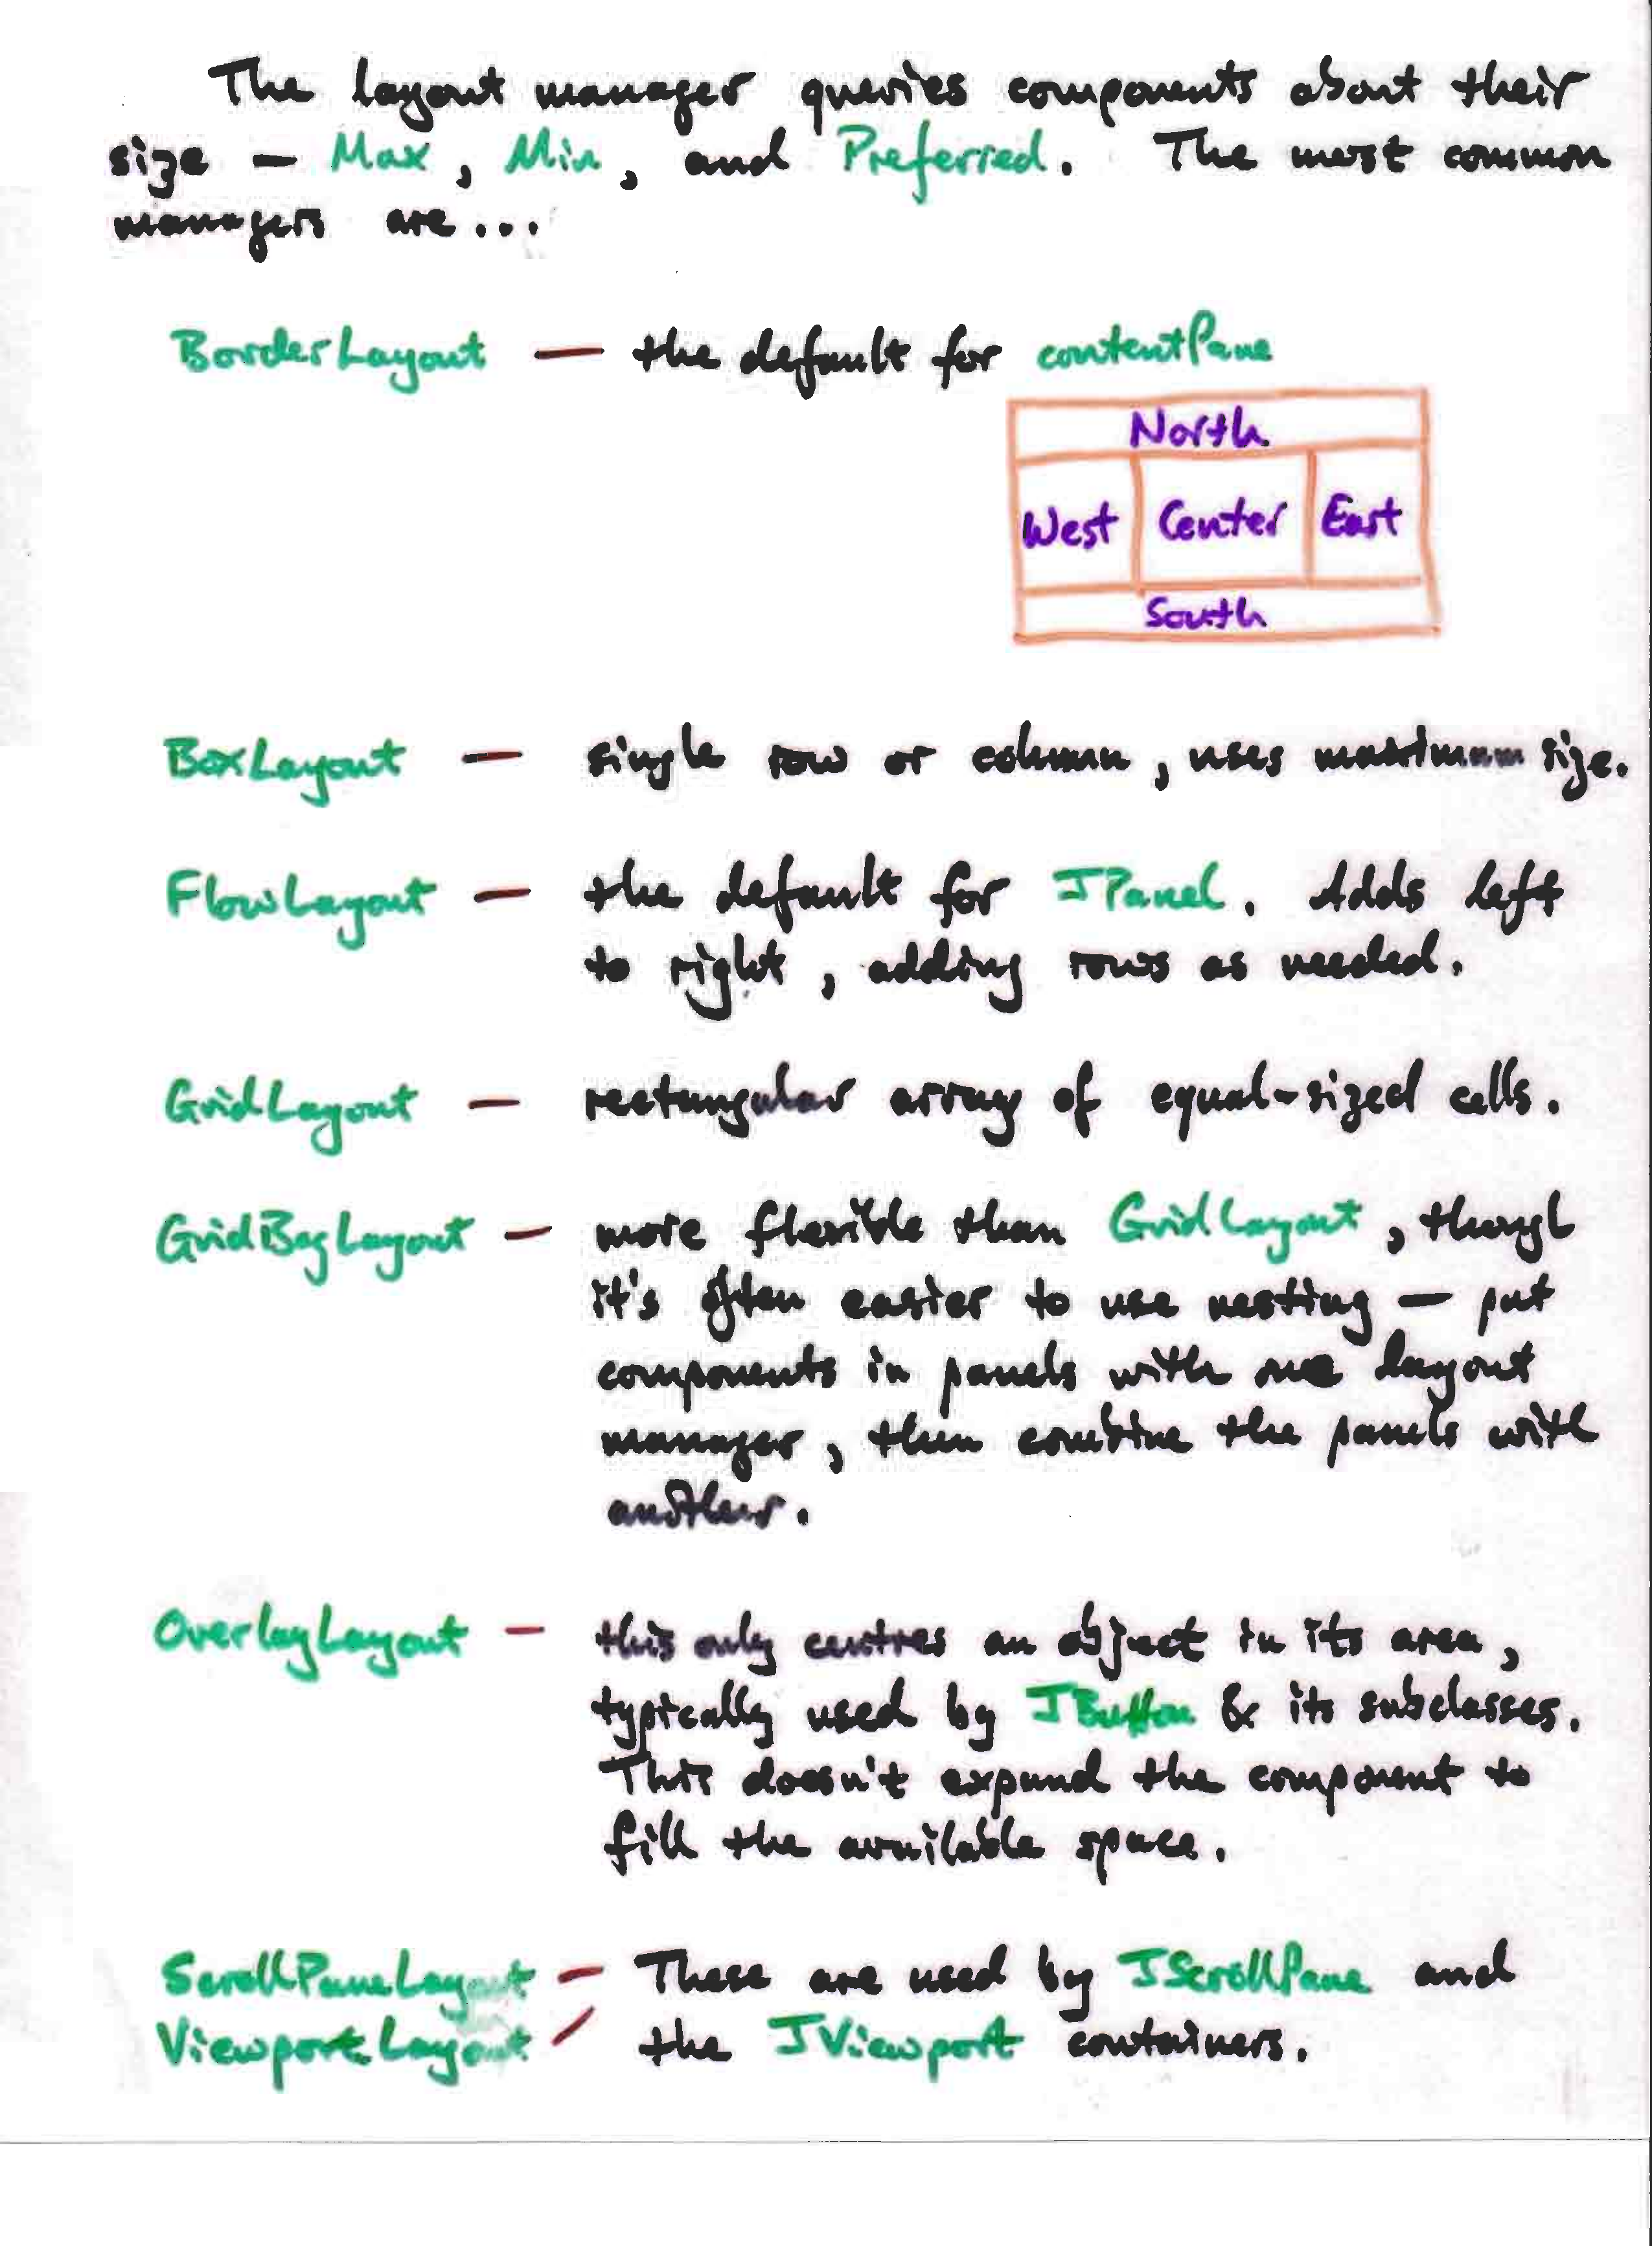 The layout manager queries components about their
size — Max, Min, and Preferred. The most common
managers are...
BorderLayout — the default for contentPane
North
West Center East
South
BoxLayout — single row or column, uses maximum size.
FlowLayout — the default for JPanel. Adds left
to right, adding rows as needed.
GridLayout — rectangular array of equal-sized cells.
GridBagLayout — more flexible than GridLayout, though
it's often easier to use nesting — put
components in panels with one layout
manager, then combine the panels with
another.
OverlayLayout — this only centres an object in its area,
typically used by JButton & its subclasses.
This doesn't expand the component to
fill the available space.
ScrollPaneLayout — These are used by JScrollPane and
ViewportLayout — the JViewport containers.